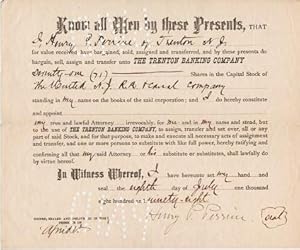 Know all Men by these Presents, THAT
I, Henry P. Perrine of Trenton N.J.
for value received have bargained, sold, assigned and transferred, and by these presents do
bargain, sell, assign and transfer unto THE TRENTON BANKING COMPANY
Seventy-one (71) Shares in the Capital Stock of
The United N.J. R.R. & Canal Company
standing in my name on the books of the said corporation; and I do hereby constitute
and appoint
my true and lawful Attorney irrevocably, for me and in my name and stead, but
to the use of THE TRENTON BANKING COMPANY, to assign, transfer and set over, all or any
part of said Stock, and for that purpose, to make and execute all necessary acts of assignment and
transfer, and one or more persons to substitute with like full power, hereby ratifying and
confirming all that my said Attorney or his substitute or substitutes, shall lawfully do
by virtue hereof.
In Witness Whereof, I have hereunto set my hand
and seal the eighth day of July one thousand
eight hundred and ninety-eight
SIGNED, SEALED AND DELIVERED IN
Henry P. Perrine seal